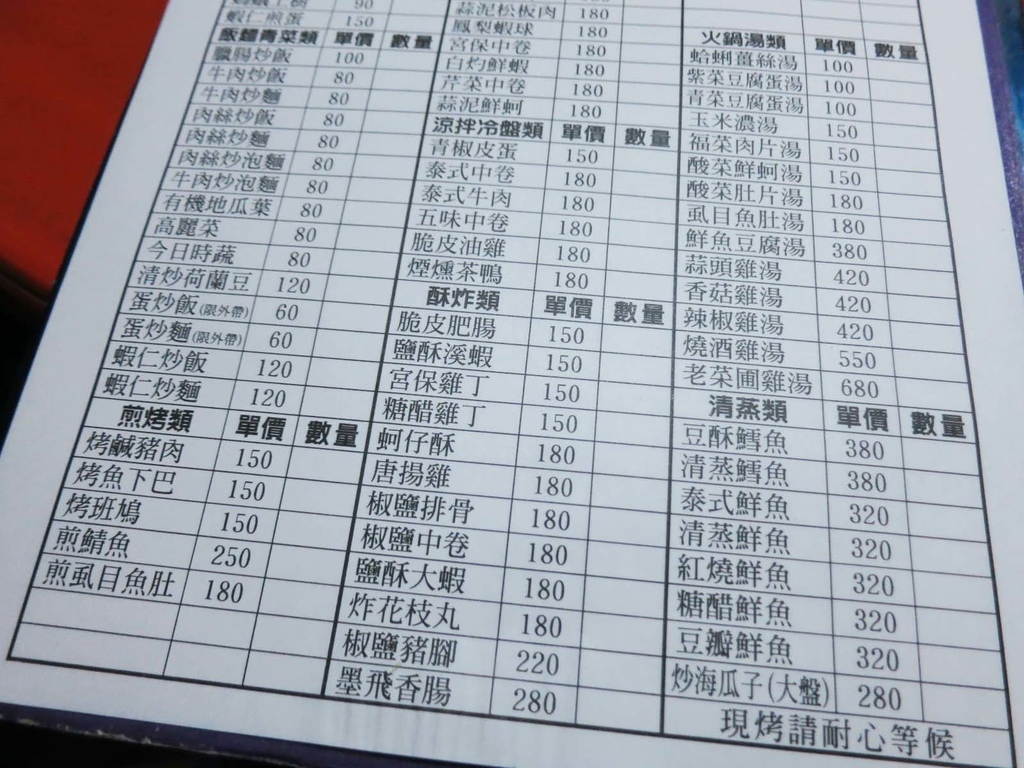 90
蝦仁煎蛋 150
飯麵青菜類 單價 數量
臘腸炒飯 100
牛肉炒飯 80
牛肉炒麵 80
肉絲炒飯 80
肉絲炒麵 80
肉絲炒泡麵 80
牛肉炒泡麵 80
有機地瓜葉 80
高麗菜 80
今日時蔬 80
清炒荷蘭豆 120
蛋炒飯(限外帶) 60
蛋炒麵(限外帶) 60
蝦仁炒飯 120
蝦仁炒麵 120
煎烤類 單價 數量
烤鹹豬肉 150
烤魚下巴 150
烤班鳩 150
煎鯖魚 250
煎虱目魚肚 180
蒜泥松板肉 180
鳳梨蝦球 180
宮保中卷 180
白灼鮮蝦 180
芹菜中卷 180
蒜泥鮮蚵 180
涼拌冷盤類 單價 數量
青椒皮蛋 150
泰式中卷 180
泰式牛肉 180
五味中卷 180
脆皮油雞 180
煙燻茶鴨 180
酥炸類 單價 數量
脆皮肥腸 150
鹽酥溪蝦 150
宮保雞丁 150
糖醋雞丁 150
蚵仔酥 180
唐揚雞 180
椒鹽排骨 180
椒鹽中卷 180
鹽酥大蝦 180
炸花枝丸 180
椒鹽豬腳 220
墨飛香腸 280
火鍋湯類 單價 數量
蛤蜊薑絲湯 100
紫菜豆腐蛋湯 100
青菜豆腐蛋湯 100
玉米濃湯 150
福菜肉片湯 150
酸菜鮮蚵湯 150
酸菜肚片湯 180
虱目魚肚湯 180
鮮魚豆腐湯 380
蒜頭雞湯 420
香菇雞湯 420
辣椒雞湯 420
燒酒雞湯 550
老菜圃雞湯 680
清蒸類 單價 數量
豆酥鱈魚 380
清蒸鱈魚 380
泰式鮮魚 320
清蒸鮮魚 320
紅燒鮮魚 320
糖醋鮮魚 320
豆瓣鮮魚 320
炒海瓜子(大盤) 280
現烤請耐心等候